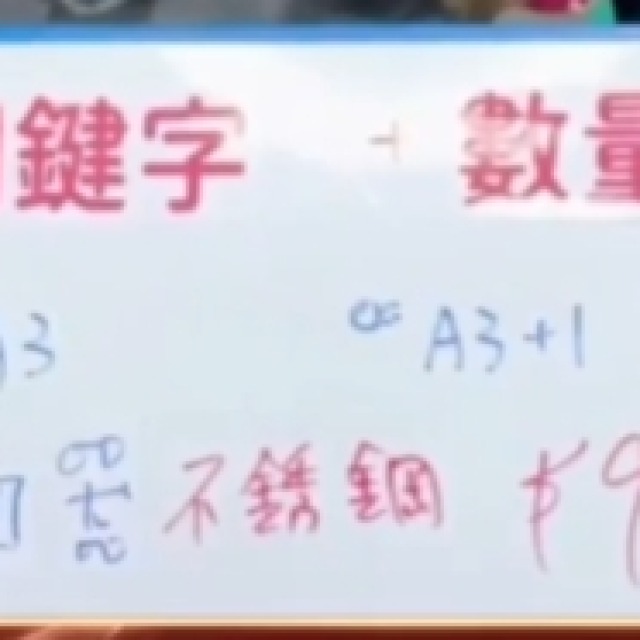 鍵字 + 數量
3 ∞ A3+1
器 不銹鋼 $9